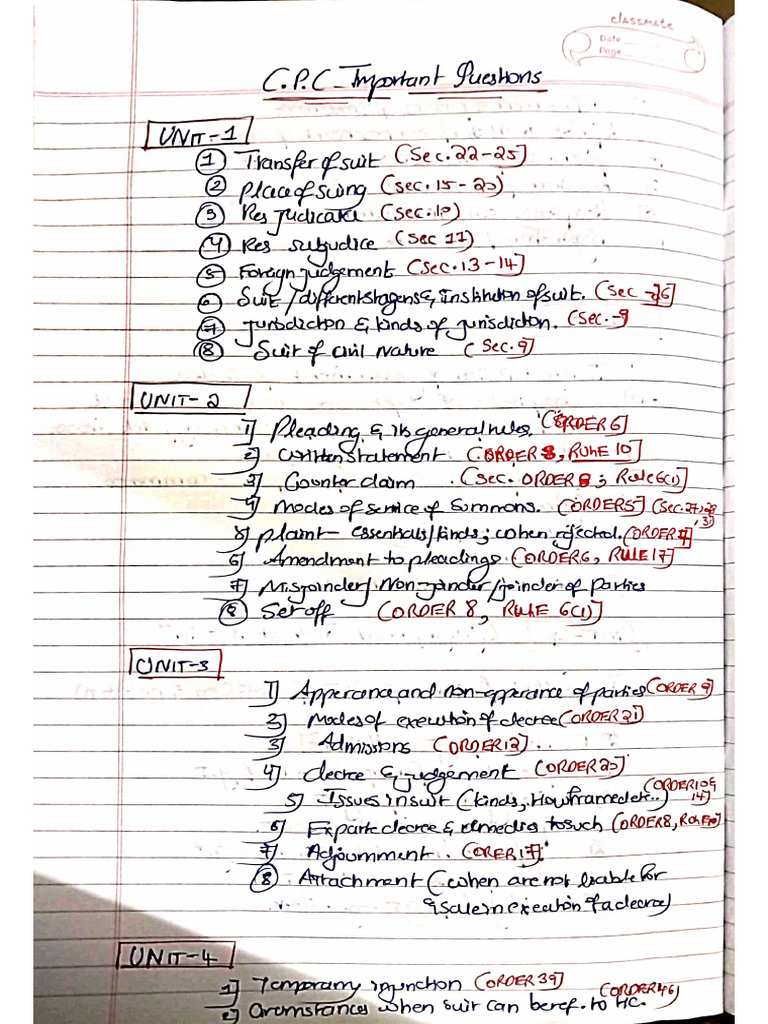 classmate
Date
Page
C.P.C - Important Questions
UNIT-1
1 Transfer of suit (Sec. 22-25]
2 place of suing (sec. 15-20)
3 Res Judicata (sec. 10)
4 Res subjudice (sec 11)
5 Foreign judgement (sec. 13-14]
6 Suit / different stagens & Institution of suit. (Sec -26]
7 jurisdiction & kinds of jurisdiction. (Sec. -9
8 Suit of civil Nature (Sec. 9]
UNIT-2
1] Pleading & its general rules. (ORDER 6]
2] written statement (ORDER 8, RULE 10]
3] Counter claim (sec. ORDER 8; Rule 6(1)
4] Modes of service of Summons. (ORDER 5] (Sec. 27, 28, 31)
5] plaint- essentials/kinds; when rejected. (ORDER 7]
6] Amendment to pleadings. (ORDER 6, RULE 17]
7] Misjoinder/Non-joinder/joinder of parties
8 Set off (ORDER 8, RULE 6(1)]
UNIT-3
1] Apperance and non-apperance of parties (ORDER 9]
2] Modes of execution of decree (ORDER 21]
3] Admissions (ORDER 12]
4] decree & judgement (ORDER 20]
5] Issues in suit (kinds, How framed etc..) (ORDER 10 & 14]
6] Exparte decree & remedies to such (ORDER 8, RULE 10]
7] Adjournment. (ORER 17].
8 Attachment (when are not liable for
& sale in execution of a decree)
UNIT-4
1] Temporary injunction (ORDER 39]
2] Circumstances when suit can be ref. to HC. (ORDER 46)